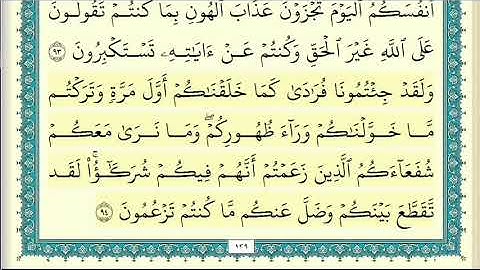 أَنفُسَكُمُ ٱلْيَوْمَ تُجْزَوْنَ عَذَابَ ٱلْهُونِ بِمَا كُنتُمْ تَقُولُونَ
عَلَى ٱللَّهِ غَيْرَ ٱلْحَقِّ وَكُنتُمْ عَنْ ءَايَـٰتِهِۦ تَسْتَكْبِرُونَ ٩٣
وَلَقَدْ جِئْتُمُونَا فُرَٰدَىٰ كَمَا خَلَقْنَـٰكُمْ أَوَّلَ مَرَّةٍ وَتَرَكْتُم
مَّا خَوَّلْنَـٰكُمْ وَرَآءَ ظُهُورِكُمْ ۖ وَمَا نَرَىٰ مَعَكُمْ
شُفَعَآءَكُمُ ٱلَّذِينَ زَعَمْتُمْ أَنَّهُمْ فِيكُمْ شُرَكَـٰٓؤُا۟ ۚ لَقَد
تَّقَطَّعَ بَيْنَكُمْ وَضَلَّ عَنكُم مَّا كُنتُمْ تَزْعُمُونَ ٩٤
١٣٩